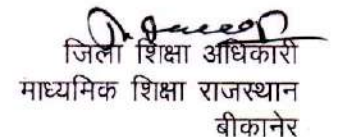 जिला शिक्षा अधिकारी
माध्यमिक शिक्षा राजस्थान
बीकानेर